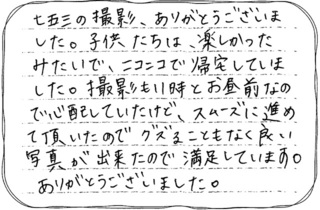 七五三の撮影、ありがとうございま
した。子供たちは、楽しかった
みたいで、ニコニコで帰宅していま
した。撮影も11時とお昼前なの
で心配していたけど、スムーズに進め
て頂いたのでグズることもなく良い
写真が出来たので満足しています。
ありがとうございました。